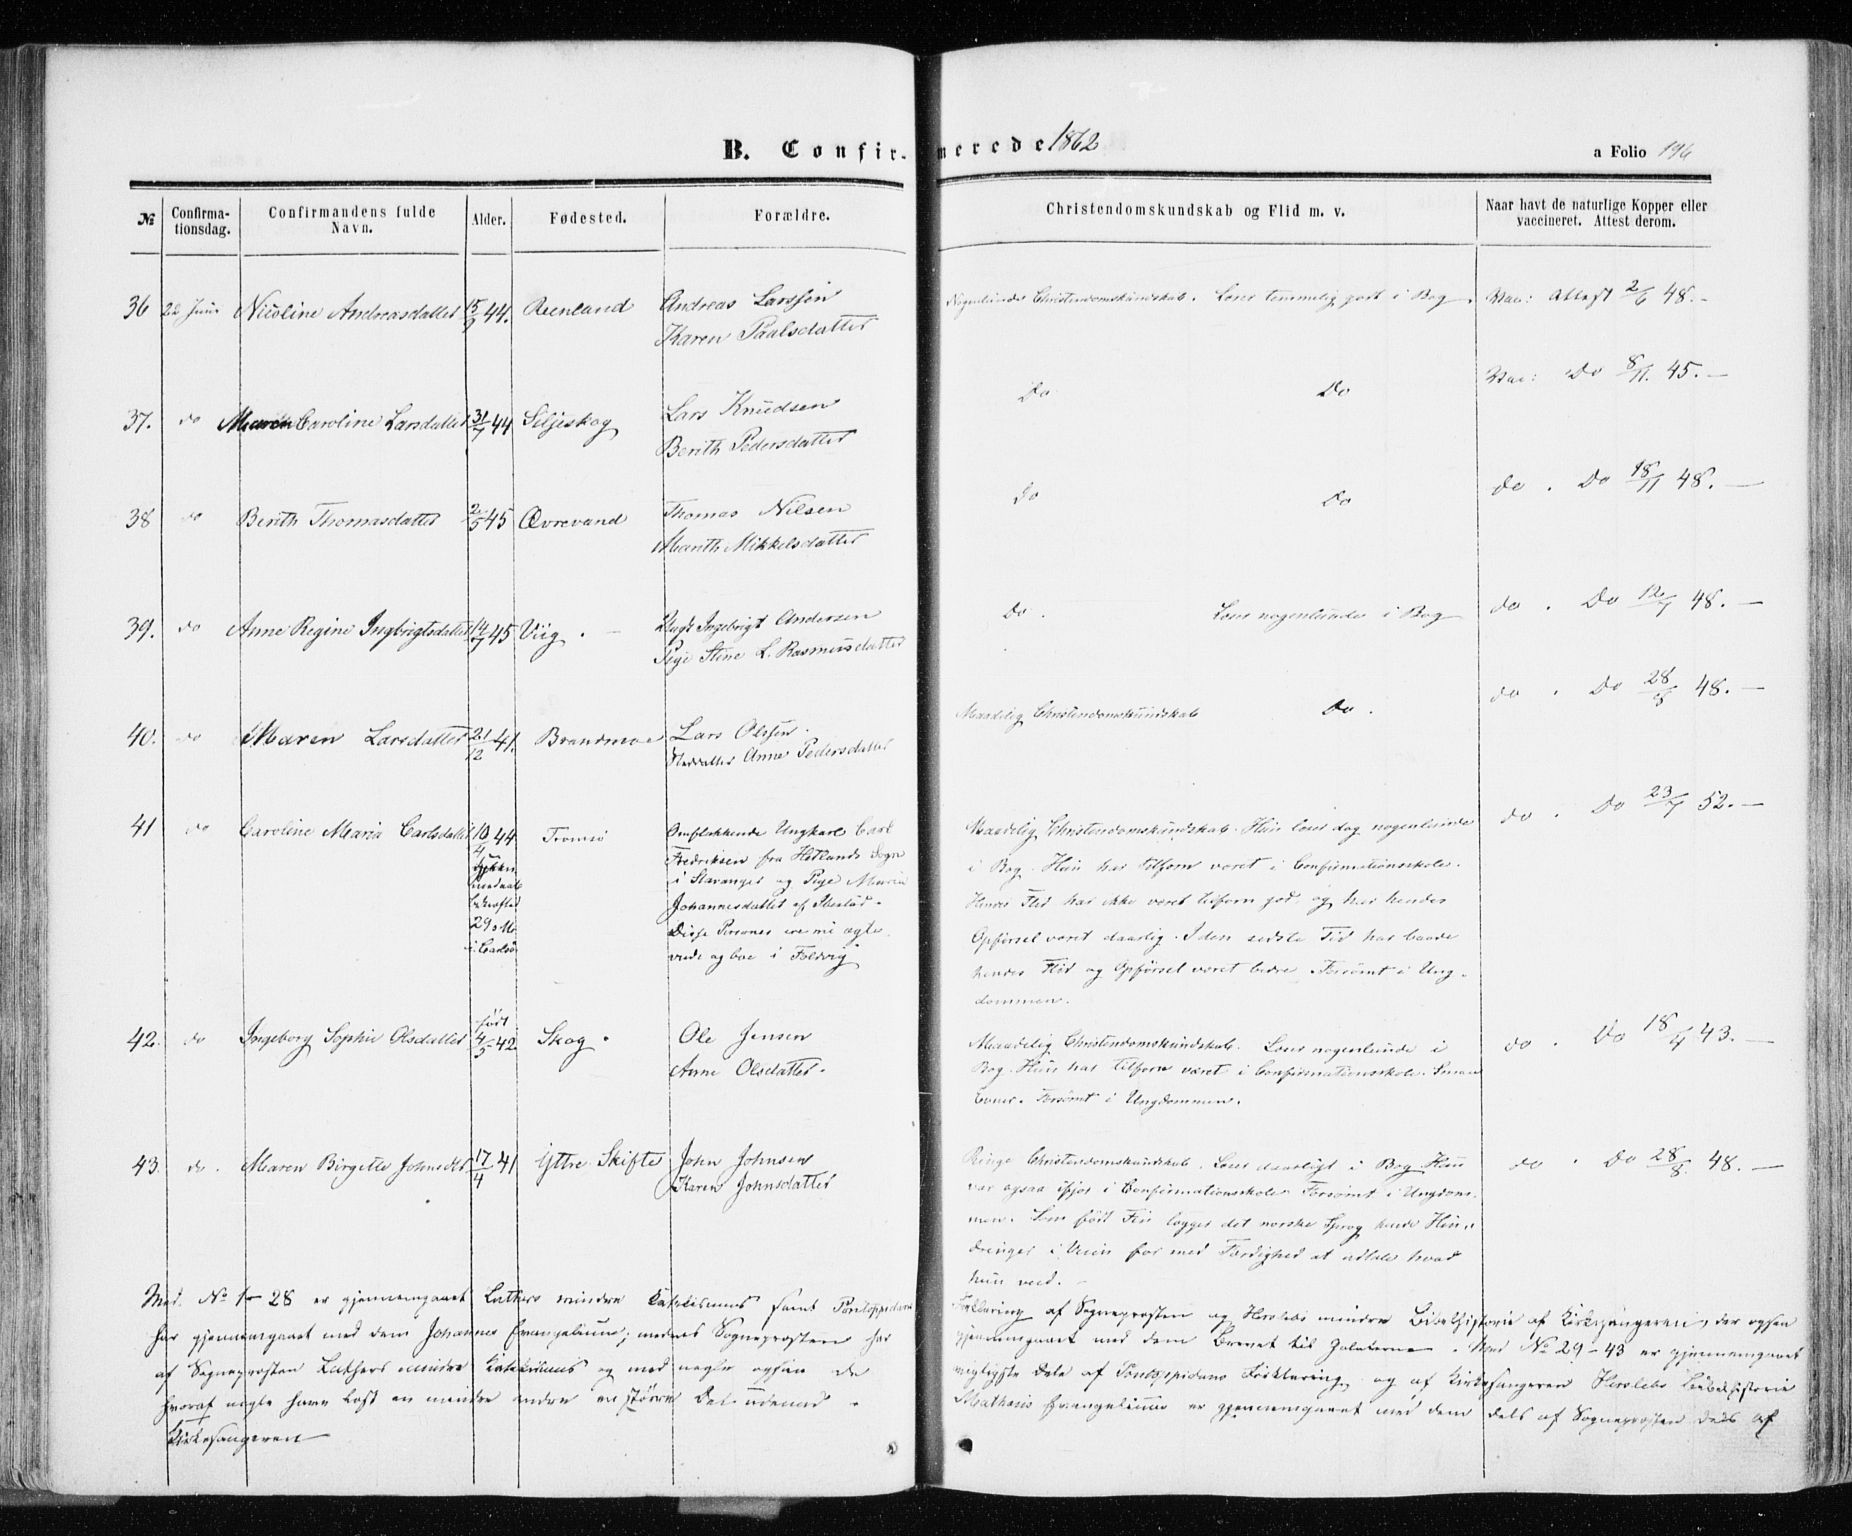 B. Confirmerede 1862
a Folio 196
№ Confirmationsdag. Confirmandens fulde Navn. Alder. Fødested. Forældre. Christendomskundskab og Flid m. v. Naar havt de naturlige Kopper eller vaccineret. Attest derom.
36 22 Juni Nicoline Andreasdatter 15/9 44. Reenland Andreas Larssen Nogenlunde Christendomskundskab. Læser temmelig godt i Bog. Vac: Attest 2/6 48. —
Karen Paalsdatter
37. do Maren Caroline Larsdatter 31/7 44 Seljeskog Lars Knudsen Do Do Vac: Do 8/11. 45. —
Berith Pedersdatter
38 do Berith Thomasdatter 2/5 45 Øvrevand Thomas Nilsen Do Do do. Do 18/11 48. —
Marith Mikkelsdatter
39. do Anne Regine Ingbrigtsdatter 14/7 45 Viig. — Ungk Ingebrigt Andersen Do. Læser nogenlunde i Bog do. Do 12/7 48. —
Pige Stine L. Rasmusdatter
40. do Maren Larsdatter 21/12 41. Brandmoe Lars Olssen. Maadelig Christendomskundskab Do. do. Do 28/8 48. —
Anne Pedersdatter
41 do Caroline Maria Carlsdatter 10/4 44 Tromsø Omflakkende Ungkarl Carl Maadelig Christendomskundskab. Hun læser dog nogenlunde do. Do 23/7 52. —
Fredriksen fra Hetlands Sogn i Bog. Hun har tilforn været i Confirmationsskole.
i Stavanger og Pige Maria Hendes Flid har ikke været tilforn god, og har hendes
29
Johannesdatter af Ibestad. Opførsel været daarlig. I den sidste Tid har baade
Disse Personer ere nu ægte hendes Flid og Opførsel været bedre. Forsømt i Ung-
viede og boe i Foldvig dommen.
42. do Ingeborg Sophie Olsdatter født 4/5 42 Skog. Ole Jensen Maadelig Christendomskundskab. Læser nogenlunde i do. Do 18/9 43. —
Anne Olsdatter. Bog. Hun har tilforn været i Confirmationsskole. Smaa
Evner. Forsømt i Ungdommen.
43. do. Maren Birgitte Johnsdtr 17/4 41 Yttre Skifte John Johnsen Ringe Christendomskundskab. Læser daarligt i Bog. Hun do. Do 28/8. 48. —
Karen Johnsdatter var ogsaa ifjor i Confirmationsskole. Forsømt i Ungdom-
men. Som født Fin lægger det norske Sprog hende Hin-
dringer i Veien for med Færdighed at udtale hvad
hun veed. —
Med No 1 – 28 er gjennemgaaet Luthers mindre Katekismus samt Pontoppidans Forklaring af Sogneprosten og Herslebs mindre Bibelhistorie af Kirkesangeren, der ogsaa
har gjennemgaaet med dem Johannes Evangelium; medens Sogneprosten har gjennemgaaet med dem Brevet til Galaterne. Med No 29–43 er gjennemgaaet
af Sogneprosten Luthers mindre Katekismus og med nogle ogsaa de vigtigste Dele af Pontoppidans Forklaring og af Kirkesangeren Herslebs Bibelhistorie
hvoraf nogle have læst en mindre andre en større Del udenad. Mathæi Evangelium er gjennemgaaet med dem dels af Sogneprosten dels af
Kirkesangeren